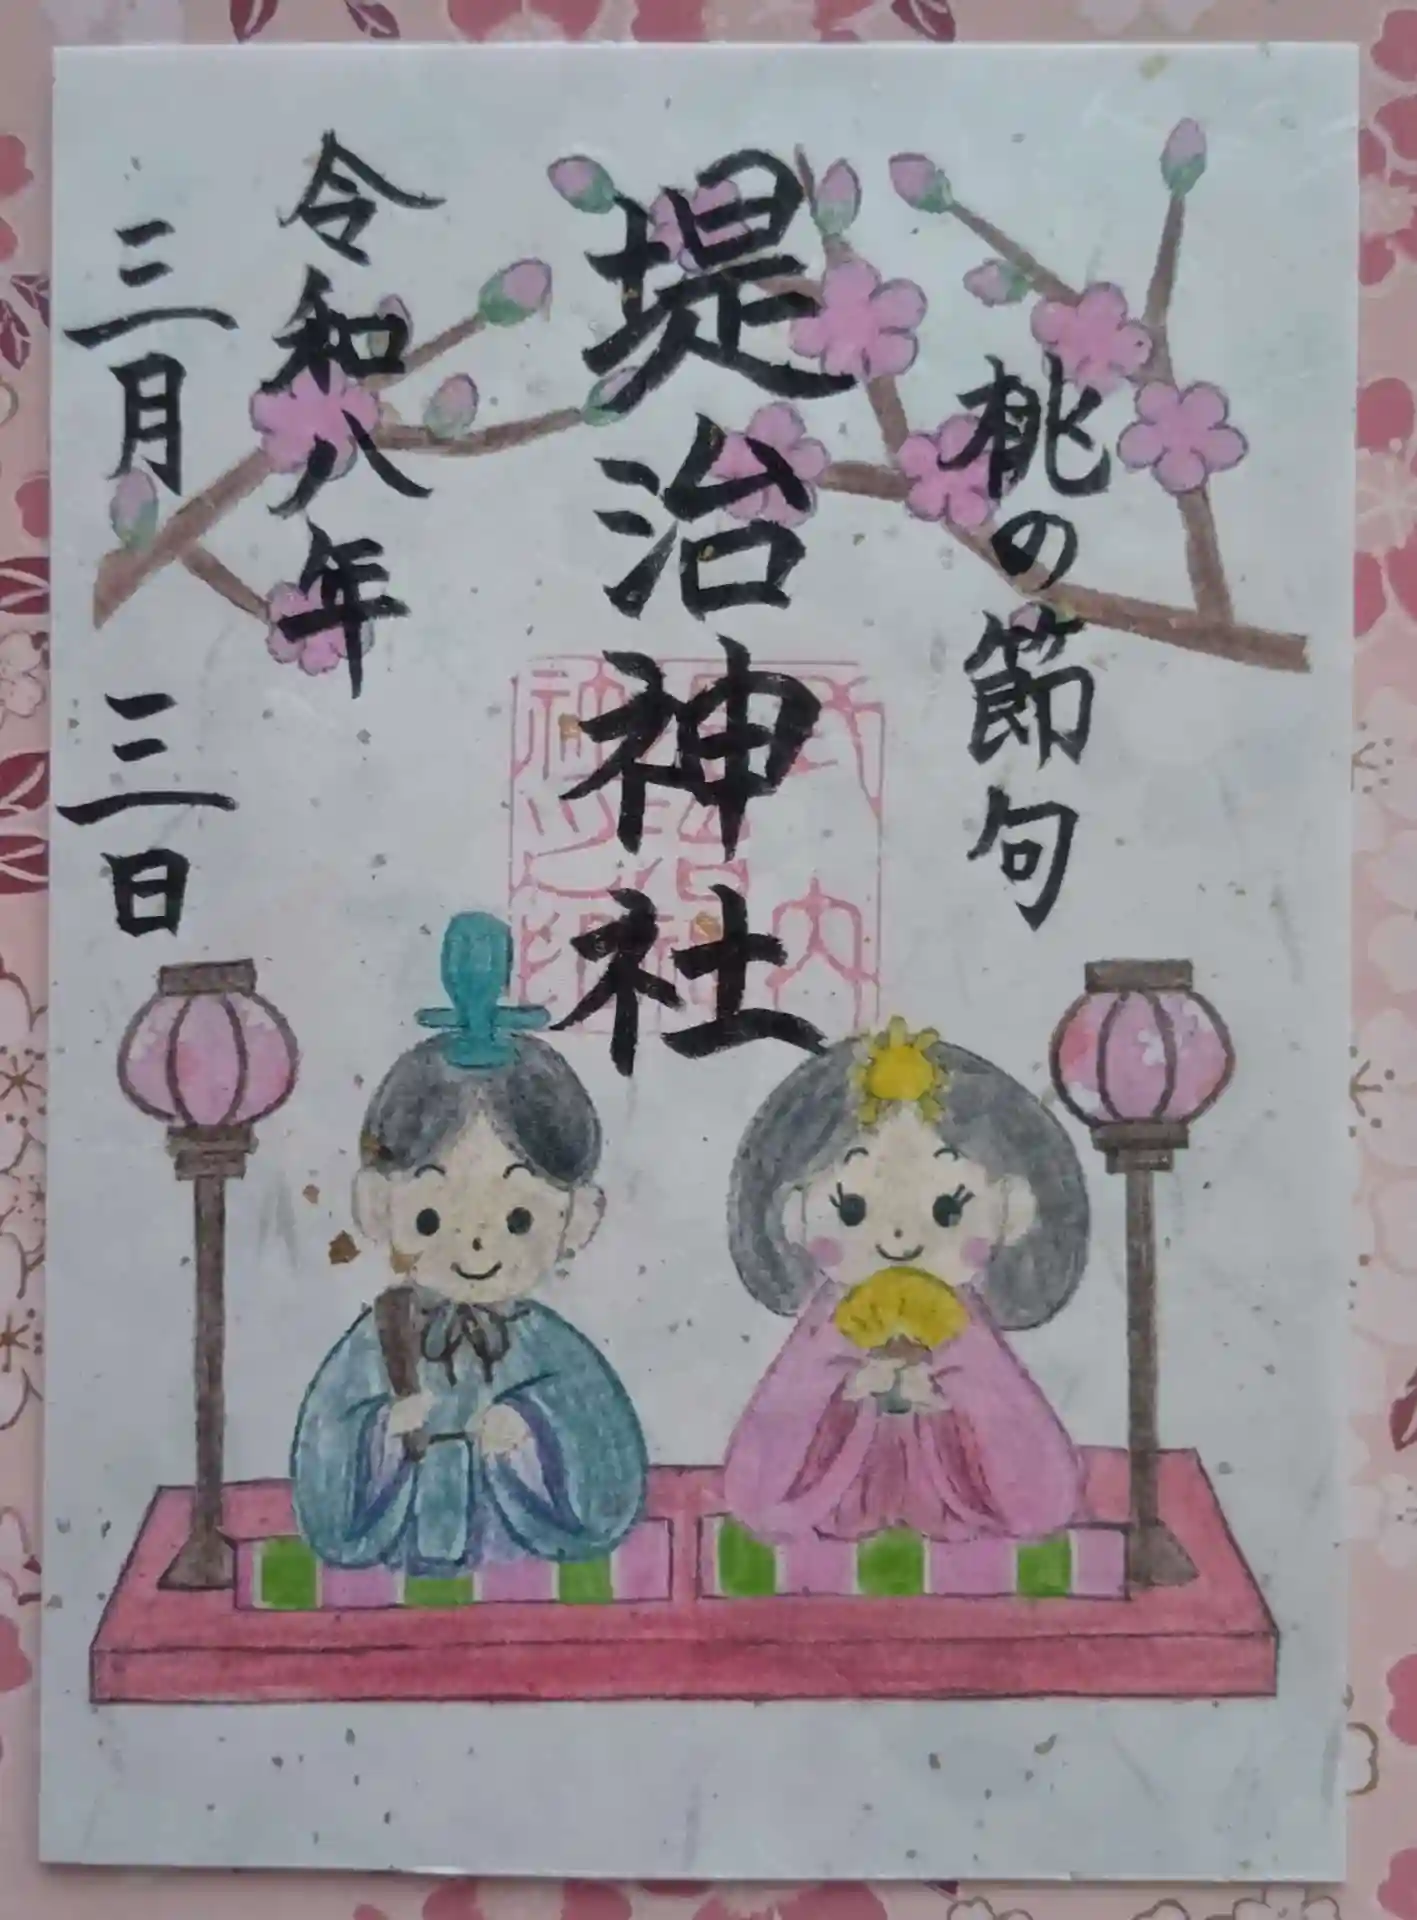 桃の節句
堤治神社
令和八年
三月三日